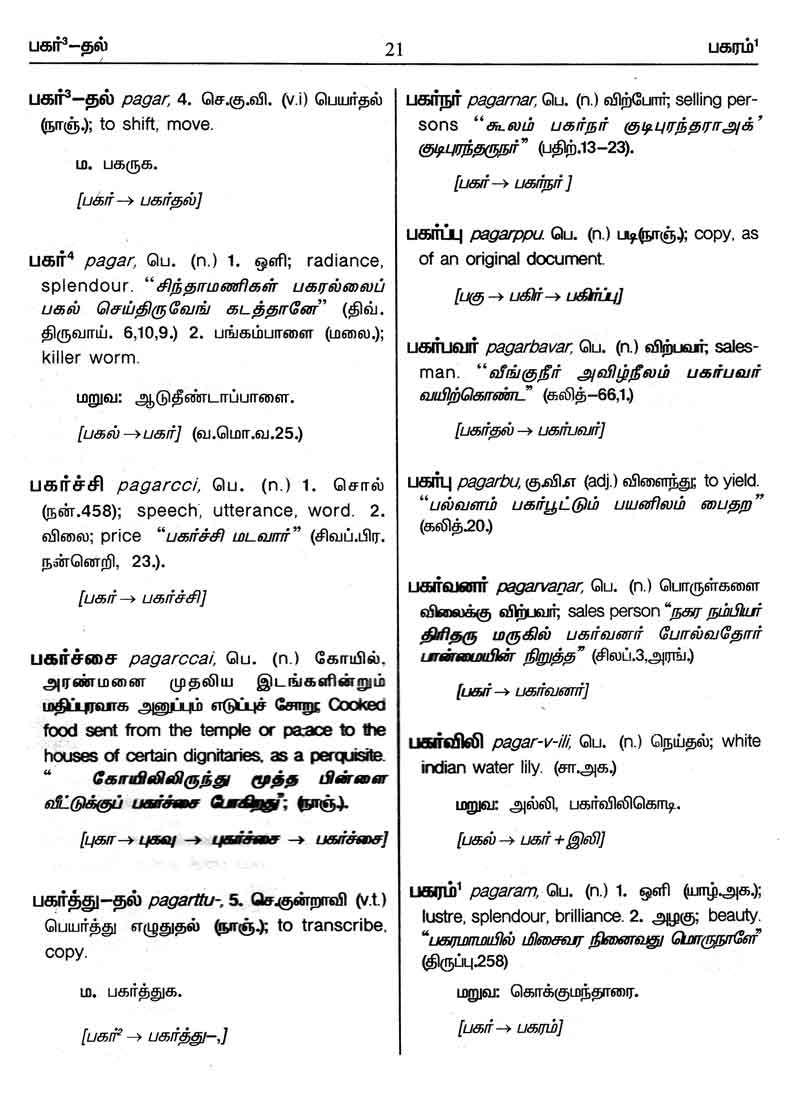 பகர்³–தல்
21
பகரம்¹
பகர்³–தல் pagar, 4. செ.கு.வி. (v.i) பெயர்தல்
(நாஞ்.); to shift, move.
ம. பகருக.
[பகர் → பகர்தல்]
பகர்⁴ pagar, பெ. (n.) 1. ஒளி; radiance,
splendour. “சிந்தாமணிகள் பகரல்லைப்
பகல் செய்திருவேங் கடத்தானே” (திவ்.
திருவாய். 6,10,9.) 2. பங்கம்பாளை (மலை.);
killer worm.
மறுவ: ஆடுதீண்டாப்பாளை.
[பகல் →பகர்] (வ.மொ.வ.25.)
பகர்ச்சி pagarcci, பெ. (n.) 1. சொல்
(நன்.458); speech, utterance, word. 2.
விலை; price “பகர்ச்சி மடவார்” (சிவப்.பிர.
நன்னெறி, 23.).
[பகர் → பகர்ச்சி]
பகர்ச்சை pagarccai, பெ. (n.) கோயில்,
அரண்மனை முதலிய இடங்களின்றும்
மதிப்புரவாக அனுப்பும் எடுப்புச் சோறு; Cooked
food sent from the temple or pa;ace to the
houses of certain dignitaries, as a perquisite.
“ கோயிலிலிருந்து மூத்த பிள்ளை
வீட்டுக்குப் பகர்ச்சை போகிறது”; (நாஞ்.).
[புகா → புகவு → புகர்ச்சை → பகர்ச்சை]
பகர்த்து–தல் pagarttu-, 5. செ.குன்றாவி (v.t.)
பெயர்த்து எழுதுதல் (நாஞ்.); to transcribe,
copy.
ம. பகர்த்துக.
[பகர்² → பகர்த்து–,]
பகர்நர் pagarnar, பெ. (n.) விற்போர்; selling per-
sons “கூலம் பகர்நர் குடிபுரந்தராஅக்’
குடிபுரந்தருநர்” (பதிற்.13–23).
[பகர் → பகர்நர் ]
பகர்ப்பு pagarppu. பெ. (n.) படி(நாஞ்.); copy, as
of an original document.
[பகு → பகிர் → பகிர்ப்பு]
பகர்பவர் pagarbavar, பெ. (n.) விற்பவர்; sales-
man. “வீங்குநீர் அவிழ்நீலம் பகர்பவர்
வயிற்கொண்ட” (கலித்–66,1.)
[பகர்தல் → பகர்பவர்]
பகர்பு pagarbu, கு.வி.எ (adj.) விளைந்து; to yield.
“பல்வளம் பகர்பூட்டும் பயனிலம் பைதற”
(கலித்.20.)
பகர்வனர் pagarvaṉar, பெ. (n.) பொருள்களை
விலைக்கு விற்பவர்; sales person “நகர நம்பியர்
திரிதரு மருகில் பகர்வனர் போல்வதோர்
பான்மையின் நிறுத்த” (சிலப்.3,அரங்.)
[பகர் → பகர்வனர்]
பகர்விலி pagar-v-ili, பெ. (n.) நெய்தல்; white
indian water lily. (சா.அக.)
மறுவ: அல்லி, பகர்விலிகொடி.
[பகல் → பகர் + இலி]
பகரம்¹ pagaram, பெ. (n.) 1. ஒளி (யாழ்.அக.);
lustre, splendour, brilliance. 2. அழகு; beauty.
“பகரமாமயில் மிசைவர நினைவது மொருநாளே”
(திருப்பு.258)
மறுவ: கொக்குமந்தாரை.
[பகர் → பகரம்]